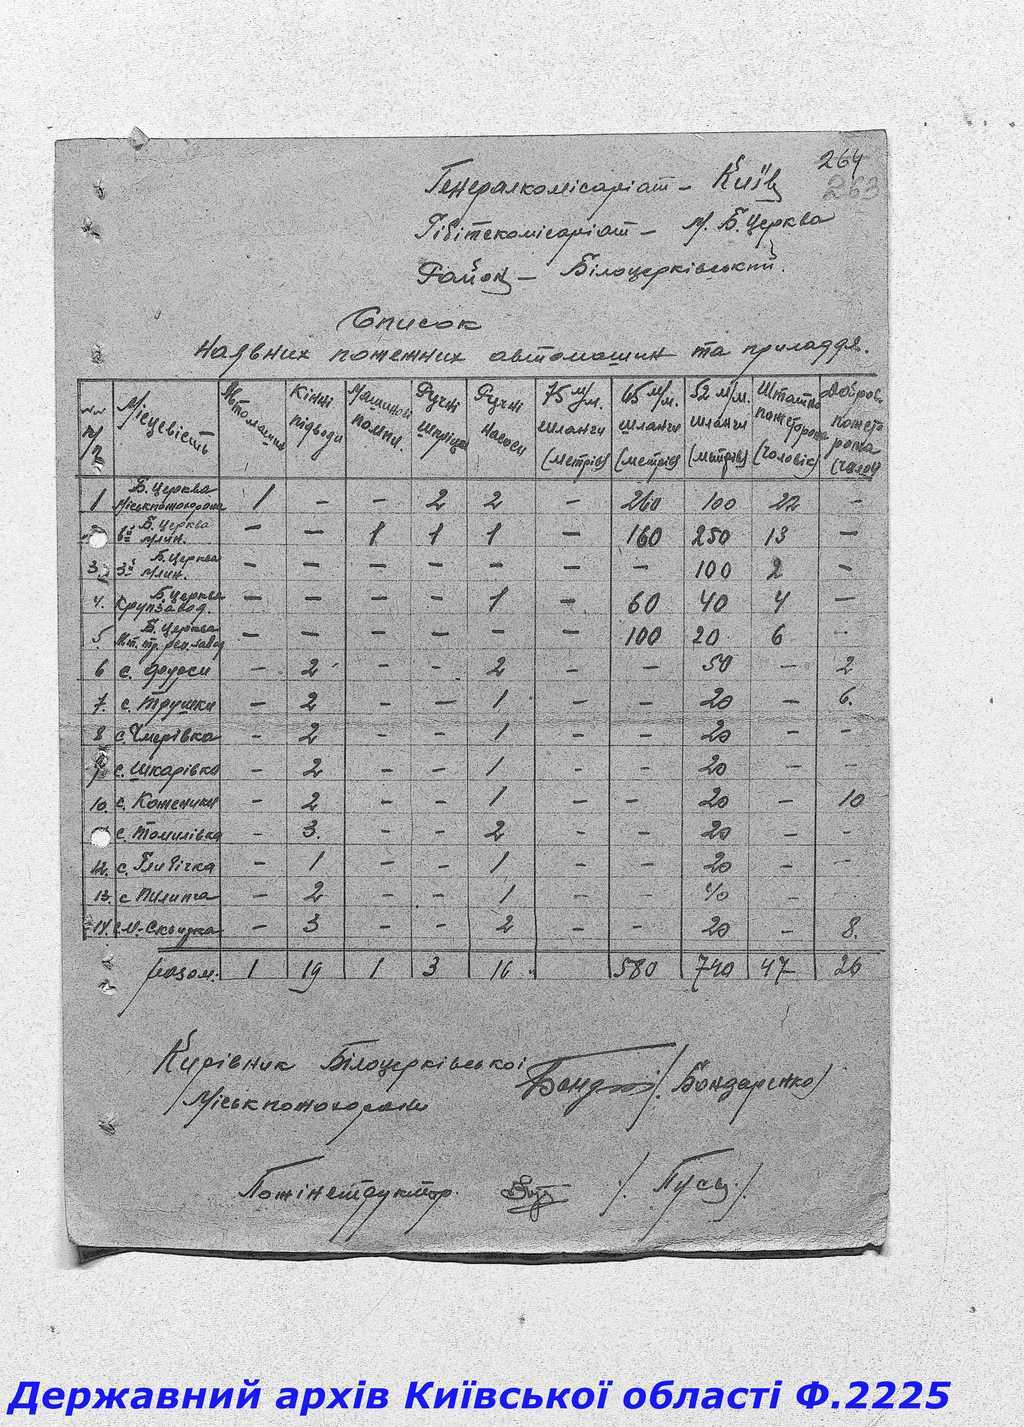 264
263
Генералкомісаріат – Київ
Гібітскомісаріат – м. Б. Церква
Район – Білоцерківський.
Список
наявних пожежних автомашин та приладдя.
п/п Місцевість Автомашин Кінні підводи Машинові помпи. Ручні шприци Ручні насоси 75 м/м. шланги (метрів) 65 м/м. шланги (метрів) 52 м/м. шланги (метрів) Штатна пожсторожа (чоловік) Добров. пожсто рожа (чолов)
1 Б. Церква Міськпожогорона 1 – – 2 2 – 260 100 22 –
2 Б. Церква млин. – – 1 1 1 – 160 250 13 –
3. Б. Церква 3й млин. – – – – – – – 100 2 –
4. Б. Церква Крупзавод. – – – – 1 – 60 40 4 –
5. Б. Церква – – – – – – 100 20 6 –
6 с. Фурси – 2 – – 2 – – 50 – 2
7. с. Трушки – 2 – – 1 – – 20 – 6.
8 с. Чмерівка – 2 – – 1 – – 20 – –
9 с. Шкарівка – 2 – – 1 – – 20 – –
10. с. Коженики – 2 – – 1 – – 20 – 10
с. Томилівка – 3. – – 2 – – 20 – –
12. с. Глибічка – 1 – – 1 – – 20 – –
13. с Пилипча – 2 – – 1 – – 40 – –
14. – 3 – – 2 – – 20 – 8.
разом. 1 19 1 3 16 580 740 47 26
Керівник Білоцерківської
Міськпожогорони /Бондаренко/
Пожінструктор. /. Гусь./.
Державний архів Київської області Ф.2225